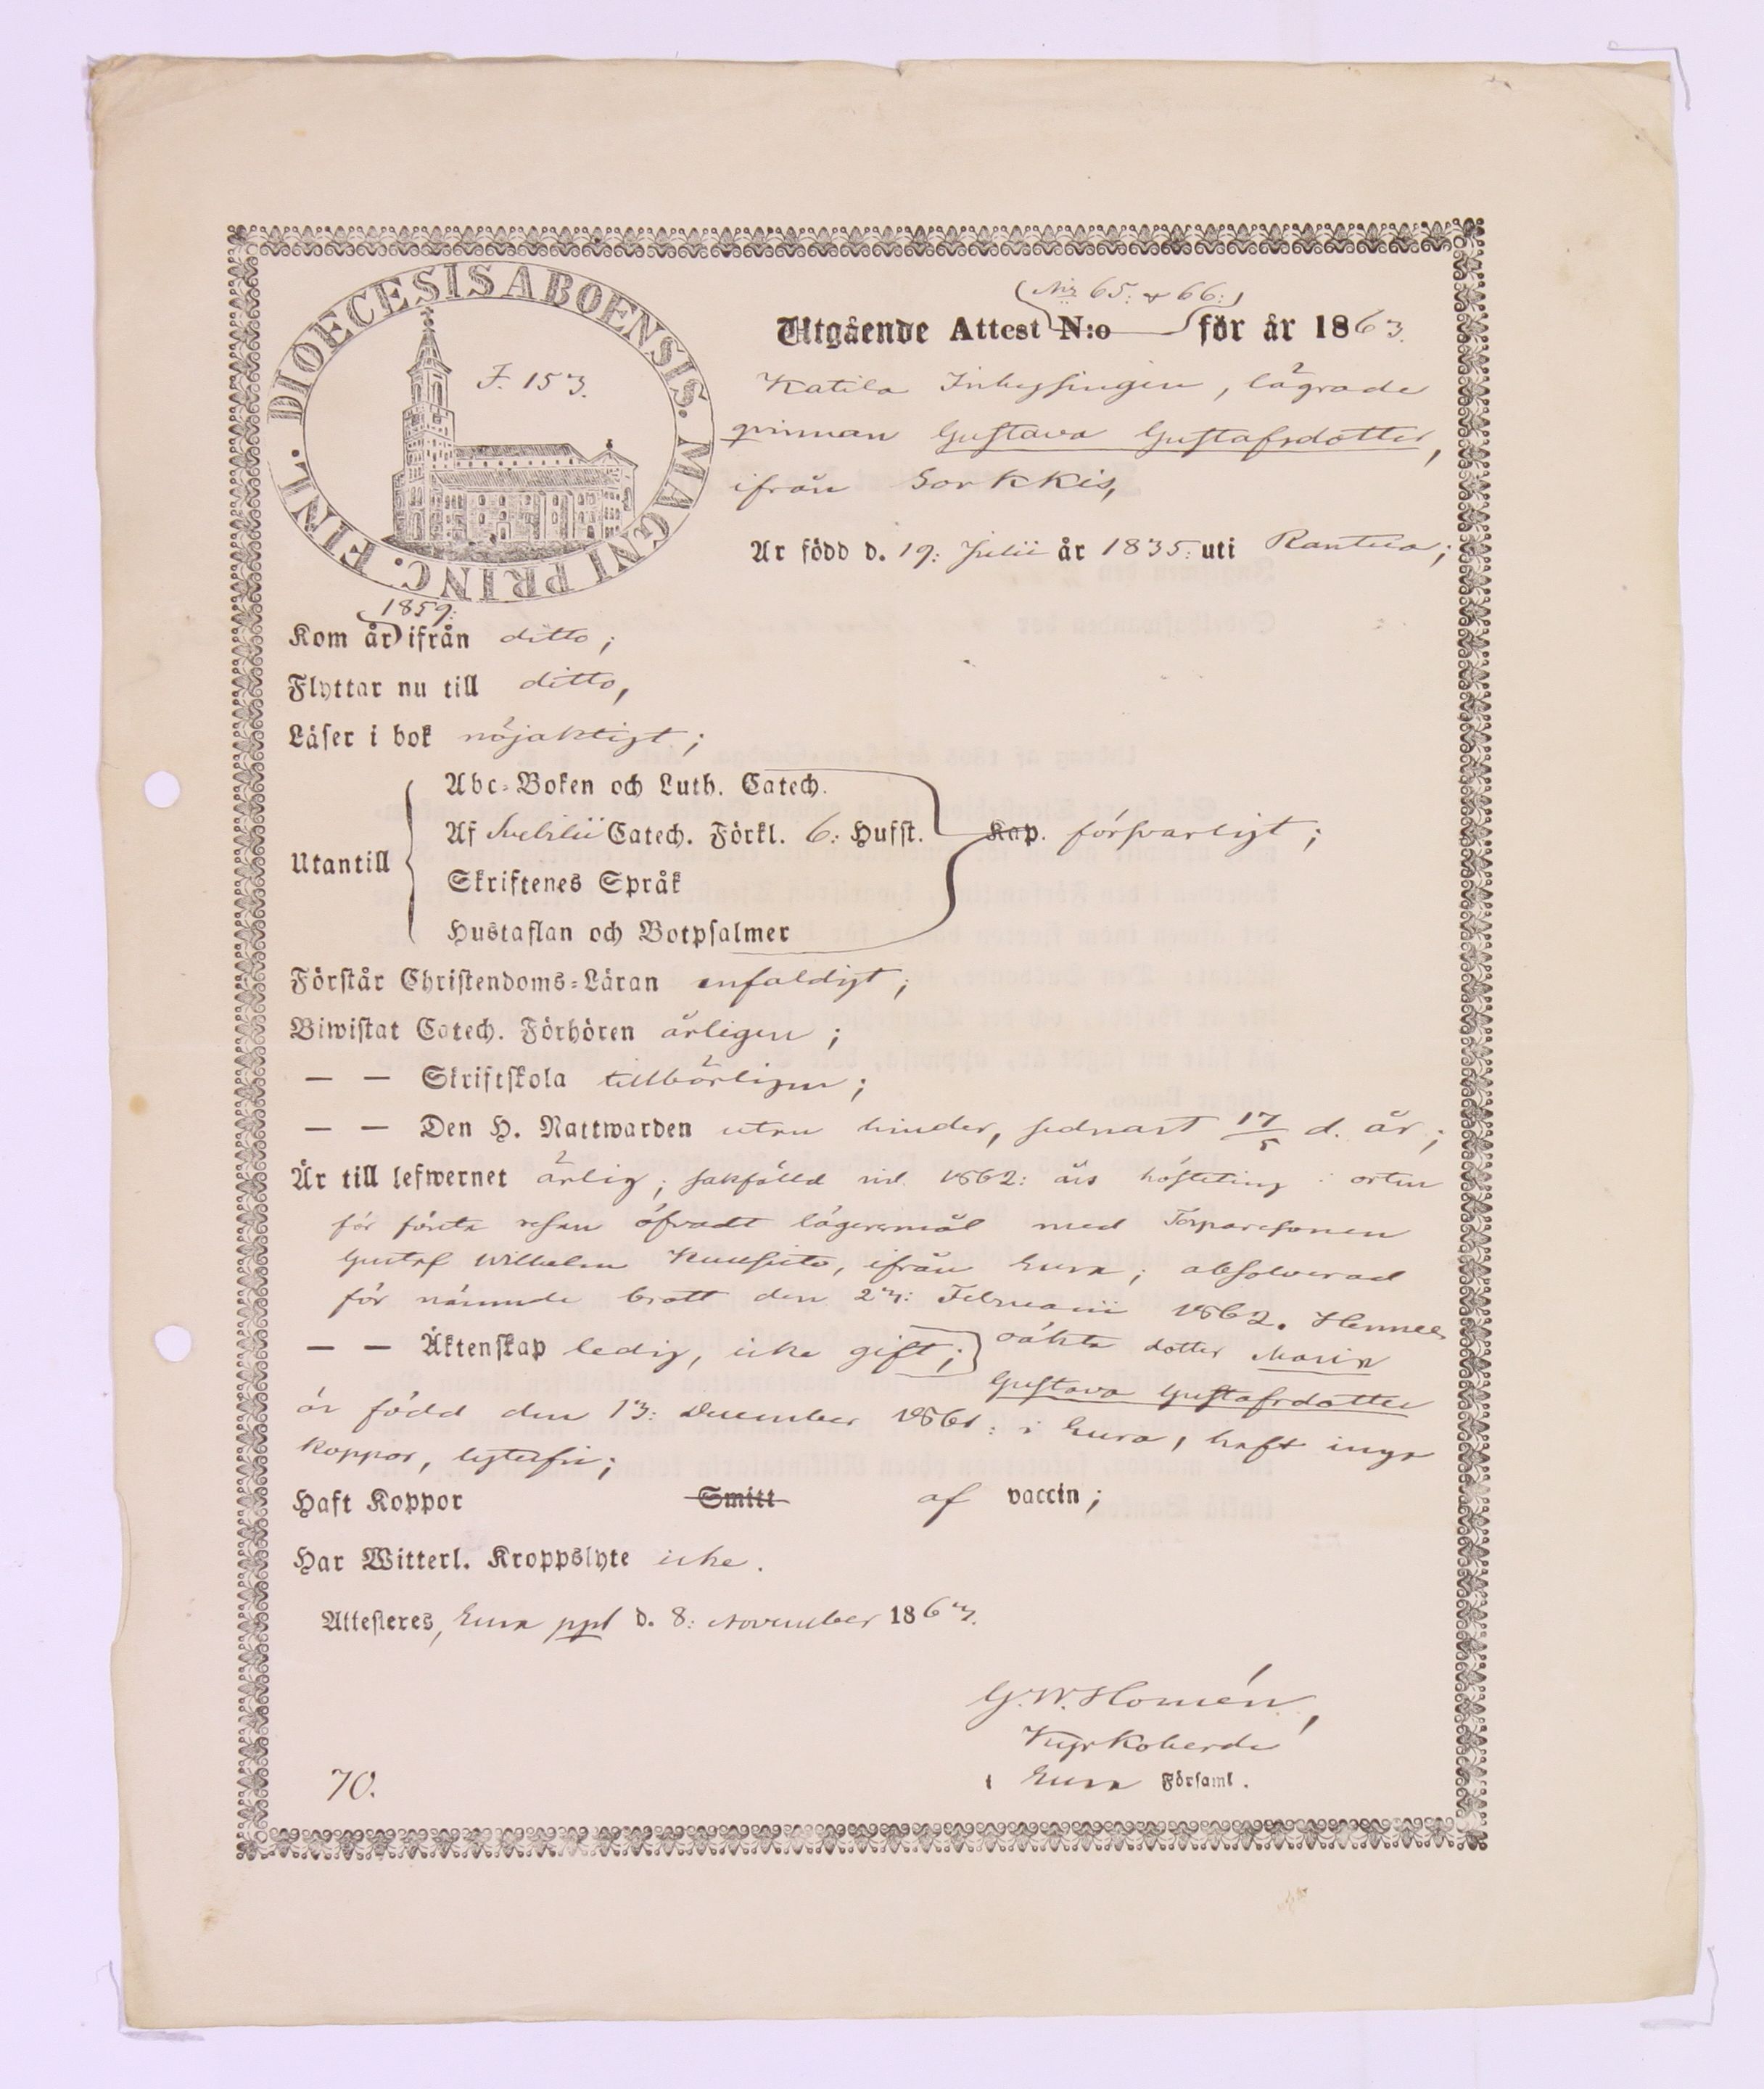 DIOECESIS ABOENSIS. MAGNI PRINC. FINL.
F. 153.
(Nris 65: & 66:)
Utgående Attest N:o för år 1863.
Katila Inhysingen, lägrade
qvinnan Gustava Gustafsdotter,
ifrån Sorkkis,
Är född d. 19: Julii år 1835: uti Rantila;
1859:
Kom år ifrån ditto;
Flyttar nu till ditto,
Läser i bok nöjaktigt;
Abc-Boken och Luth. Catech.
Af Svebilii Catech. Förkl. 6: Hufst. Kap. försvarligt;
Utantill
Skriftenes Språk
Hustaflan och Botpsalmer
Förstår Christendoms-Läran enfaldigt;
Biwistat Catech. Förhören årligen;
— — Skriftskola tillbörligen;
— — Den H. Nattwarden utan hinder, sednast 17/5 d. år;
Är till lefwernet ärlig; sakfälld vid 1862: års hösteting i orten
för första resan öfvadt lägersmål med Torparesonen
Gustaf Wilhelm, ifrån Eura; absolverad
för nämnde brott den 23: Februarii 1862. Hennes
— — Äktenskap ledig, icke gift; oäkta dotter Maria
Gustava Gustafsdotter
är född den 13: December 1861: i Eura, haft inga
koppor, lytesfri;
Haft Koppor Smitt af vaccin;
Har Witterl. Kroppslyte icke.
Attesteras, Eura ppl d. 8: November 1863.
G. W. Homén,
Kyrkoherde
i Eura Församl.
70.